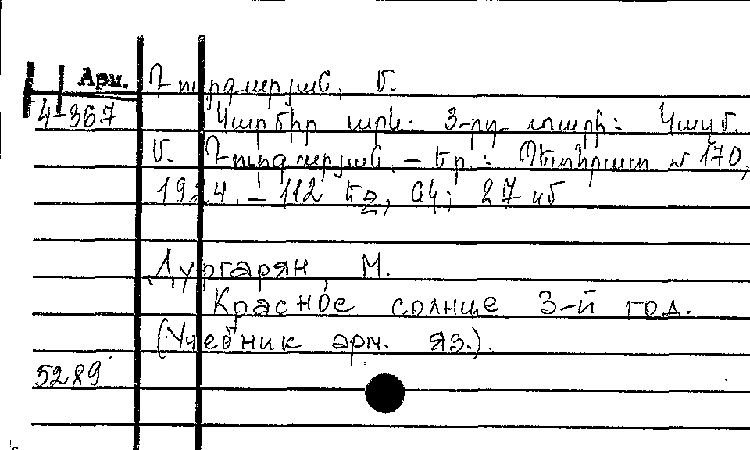 Арм. Դուրգարյան, Մ.
4-367 Կարմիր արև. 3-րդ տարի: Կազմ.
Մ. Դուրգարյան. – Եր.: Պետհրատ № 170,
1924. – 112 էջ, 27 սմ
Дургарян, М.
Красное солнце 3-й год.
(Учебник арм. яз.).
5289